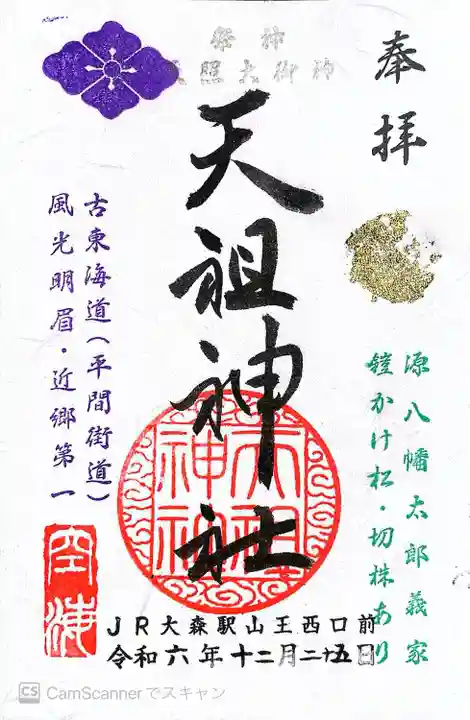 奉拝
源八幡太郎義家
鎧かけ松・切株あり
祭神
天照大御神
天祖神社
天祖神社
古東海道(平間街道)
風光明眉・近郷第一
空海
JR大森駅山王西口前
令和六年十二月二十五日
CS CamScannerでスキャン